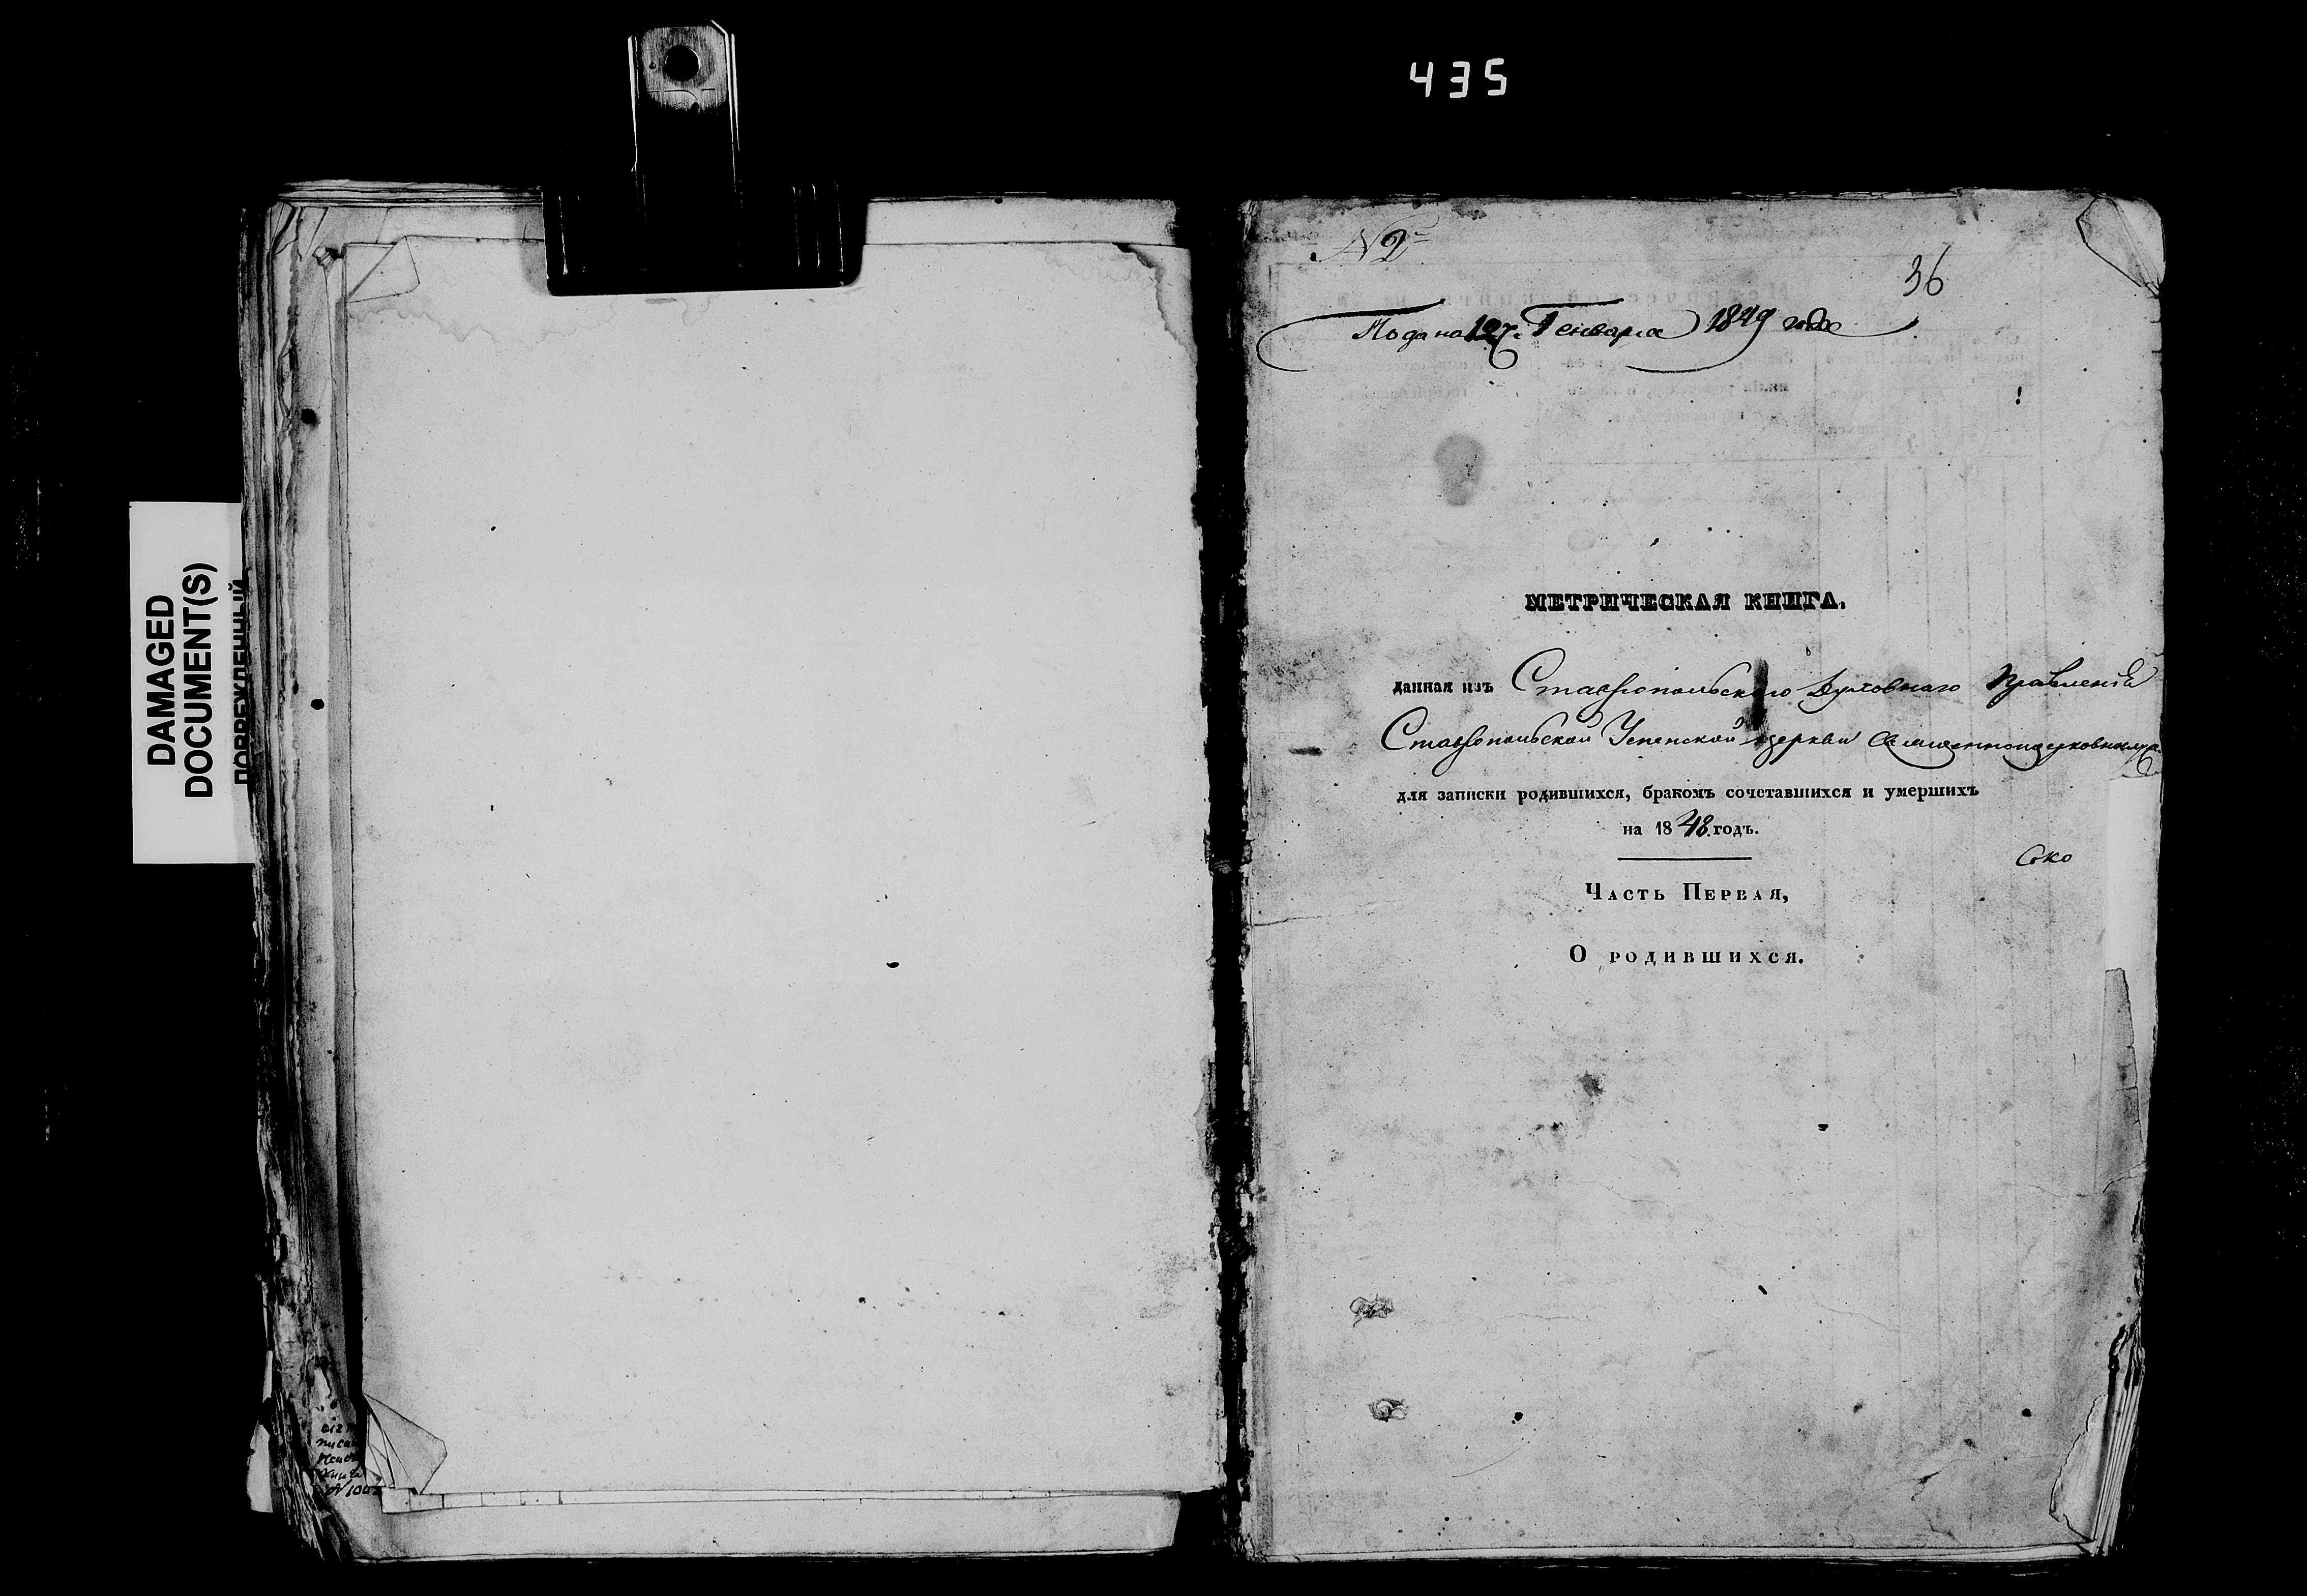 435
DAMAGED
DOCUMENT(S)
ПОВРЕЖДЕННЫЙ
№ 2й
36
Подана 12 Генваря 1849 года
МЕТРИЧЕСКАЯ КНИГА,
данная изъ Ставропольскаго Духовнаго Правленія
Ставропольской Успенской церкви священноцерковнослуж
для записки родившихся, бракомъ сочетавшихся и умершихъ
на 1848 годъ.
Часть Первая,
О родившихся.